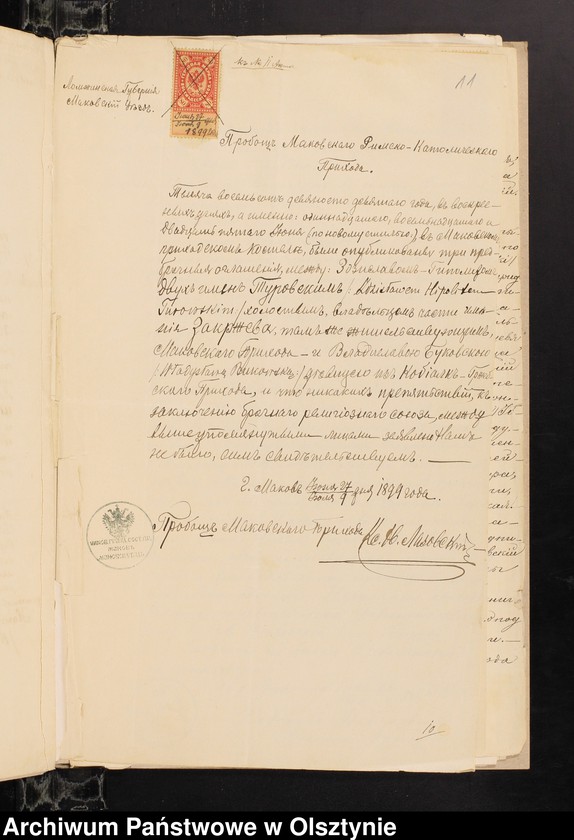 11
Ломжинская Губернія
Маковскій Уѣздъ.
Іюня 27
Іюля 9
1899
Пробощъ Маковскаго Римско-Католическаго
Прихода.
Тысяча восемьсотъ девяносто девятаго года, въ воскре-
сныхъ дняхъ, а именно: одиннадцатаго, восемнадцатаго и
двадцать пятаго Іюня (по новому стилю,) въ Маковскомъ
приходскомъ костелѣ, были опубликованы три пред-
брачныя оглашенія, между: Здзиславомъ-Гиполитомъ
двухъ именъ Туровскимъ / Zdzisławem Hipolitem
Turowskim / холостымъ, владѣльцомъ части имѣ-
нія Закржева, тамъ же жительствующимъ,
Маковскаго Прихода – и Владиславою Буковскою
/ Władysławą Bukowską / дѣвицею изъ
скаго Прихода, и что никакихъ препятствій, къ
заключенію брачнаго религіознаго союза, между
вышеупомянутыми лицами заявлено Намъ
не было, симъ свидѣтельствуемъ. —
г. Маковъ Іюня 27 / Іюля 9 дня 1899 года.
Пробощъ Маковскаго Прихода Кс.
10
Archiwum Państwowe w Olsztynie